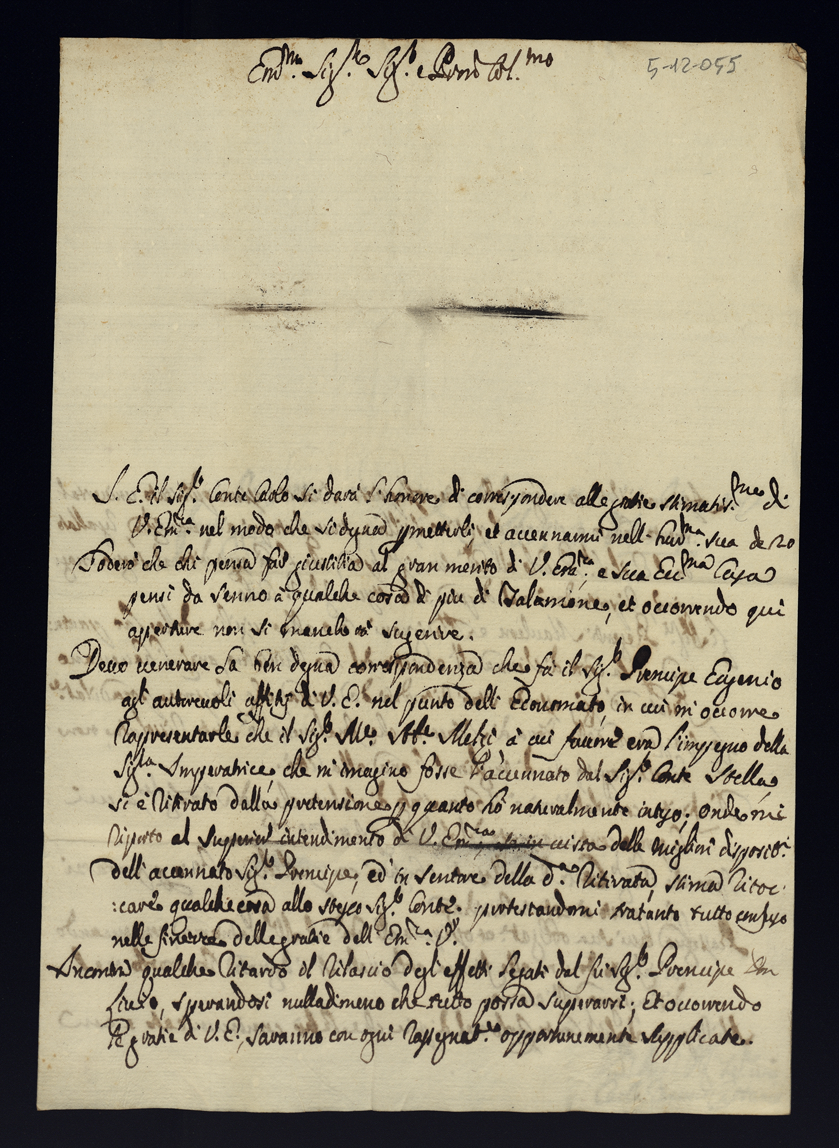 Em.mo Sig.re Sig.r e Pron Col.mo
5-12-055
S. E. il Sig.r Conte Carlo si darà l'honore di correspondere alle gratie stimatis.me di
V. Em.za nel modo che si dignad permetterli, et accennarmi nell'hum.ma sua de 20
Poderà che chi pensa far giustitia al gran merito di V. Em.za, e sua Ecc.ma Casa
pensi da senno à qualche cosa di piu di Talamone, et occorrendo qui
aperture non si mancherà sugerire.
Devo venerare la ben degna correspondenza che fà il Sig.r Prencipe Eugenio
agl'autorevoli affitij di V. E. nel punto delli Economato, in cui m'occorre
rapresentarle che il Sig.r M.e Ab.e Melzi, à cui favore era l'impegno della
Sig.ra Imperatrice, che m'imagino fosse l'accennato dal Sig.r Conte Stella
si è ritirato dalla pretensione p quanto hò naturalmente inteso; onde mi
riporto al superior intendimento di V. Em.za in vista delle migliori disposit.i
dell'accennato Sig.r Prencipe, ed in sentore della d.a ritirata, stimad ritoc:
:care qualche cosa allo stesso Sig.r Conte protestandomi tratanto tutto confuso
nelle finezze delle gratie dell'Em.za V.
Incontra qualche ritardo il rilascio degl'effetti legati dal fù Sig.r Prencipe
Livio, sperandosi nulladimeno che tutto possa superarsi; Et occorrendo
le gratie di V. E., saranno con ogni rassegnat.ne opportunemente supplicate.